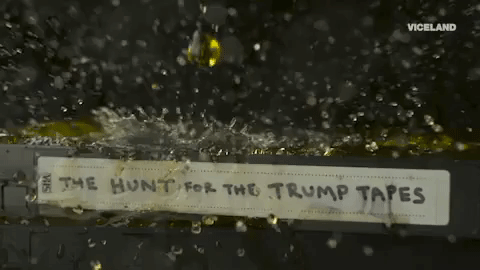 VICELAND
VHS
THE HUNT FOR THE TRUMP TAPES